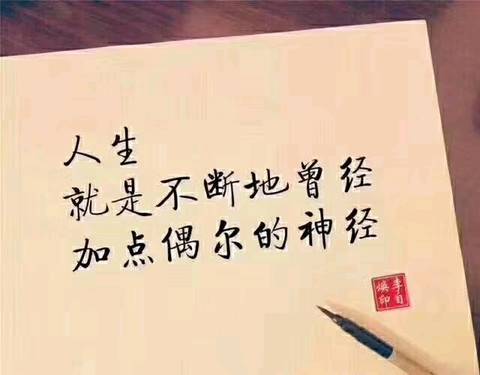 人生
就是不断地曾经
加点偶尔的神经